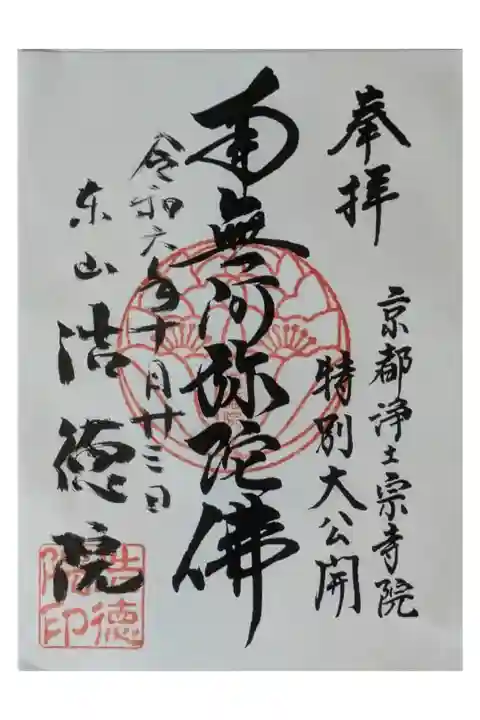 奉拝
京都浄土宗寺院
特別大公開
南無阿弥陀佛
令和六年十月廿三日
东山 浩徳院
浩徳院印